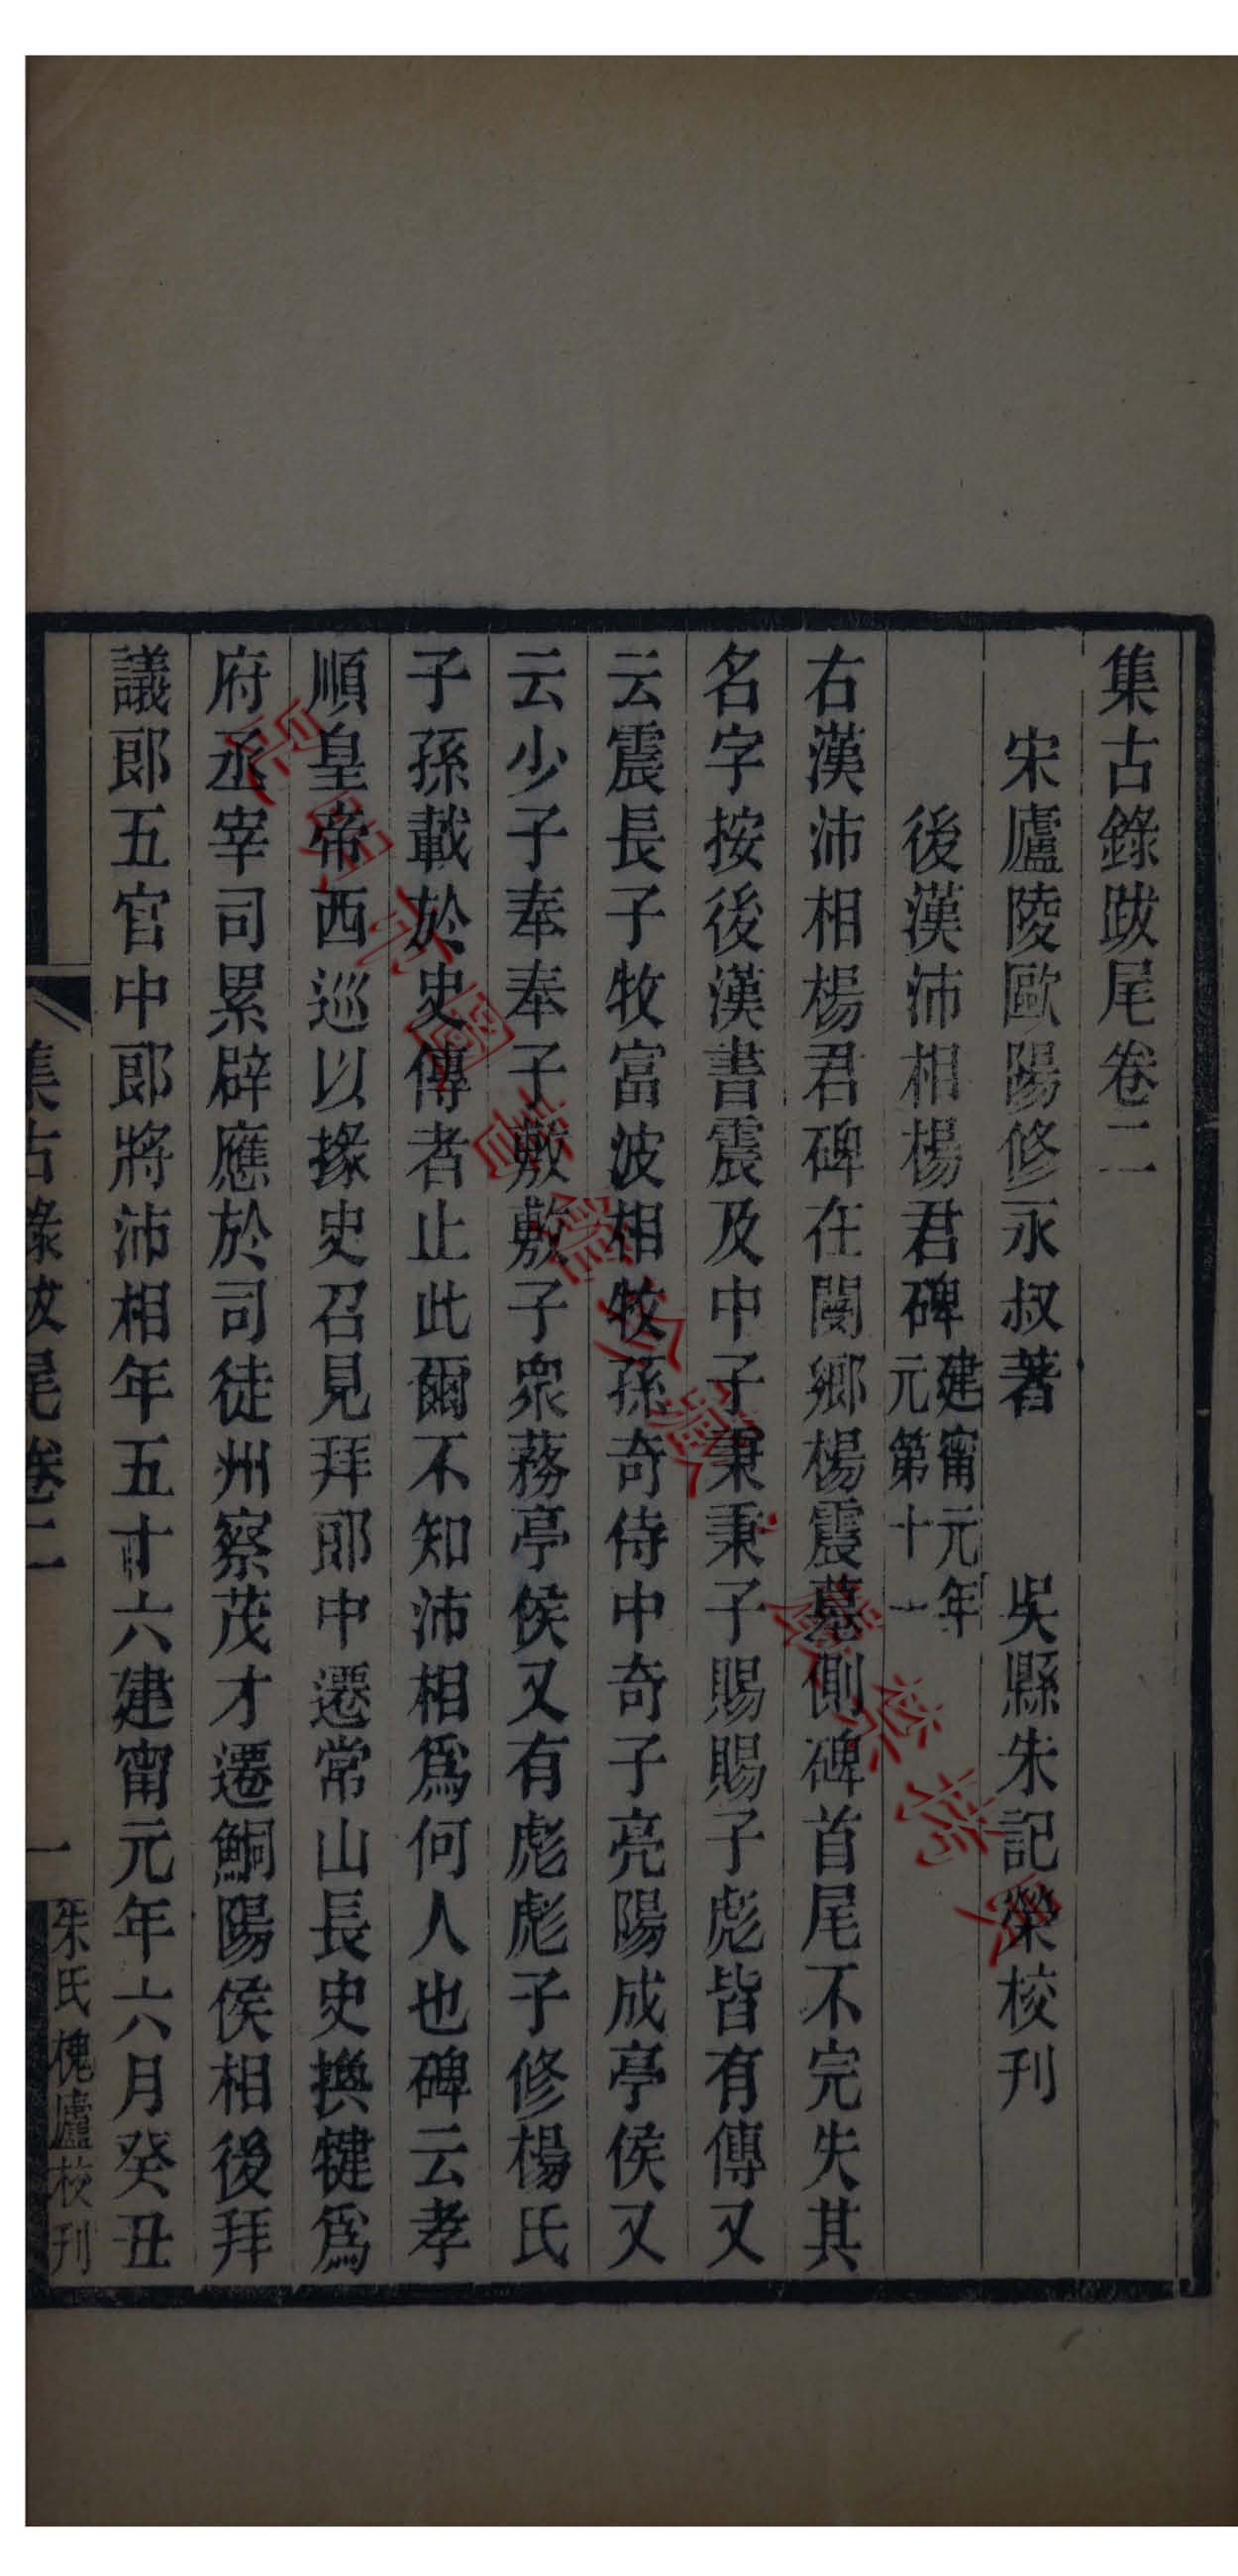 集古錄跋尾卷二
宋廬陵歐陽修永叔著　吳縣朱記榮校刊
後漢沛相楊君碑建甯元年元第十一
右漢沛相楊君碑在閿鄉楊震墓側碑首尾不完失其
名字按後漢書震及中子秉秉子賜賜子彪皆有傳又
云震長子牧富波相牧孫奇侍中奇子亮陽成亭侯又
云少子奉奉子敷敷子衆蓩亭侯又有彪彪子修楊氏
子孫載於史傳者止此爾不知沛相爲何人也碑云孝
順皇帝西巡以掾史召見拜郎中遷常山長史換犍爲
府丞宰司累辟應於司徒州察茂才遷鮦陽侯相後拜
議郎五官中郎將沛相年五十六建甯元年六月癸丑
集古錄跋尾卷二
一
朱氏槐廬校刊